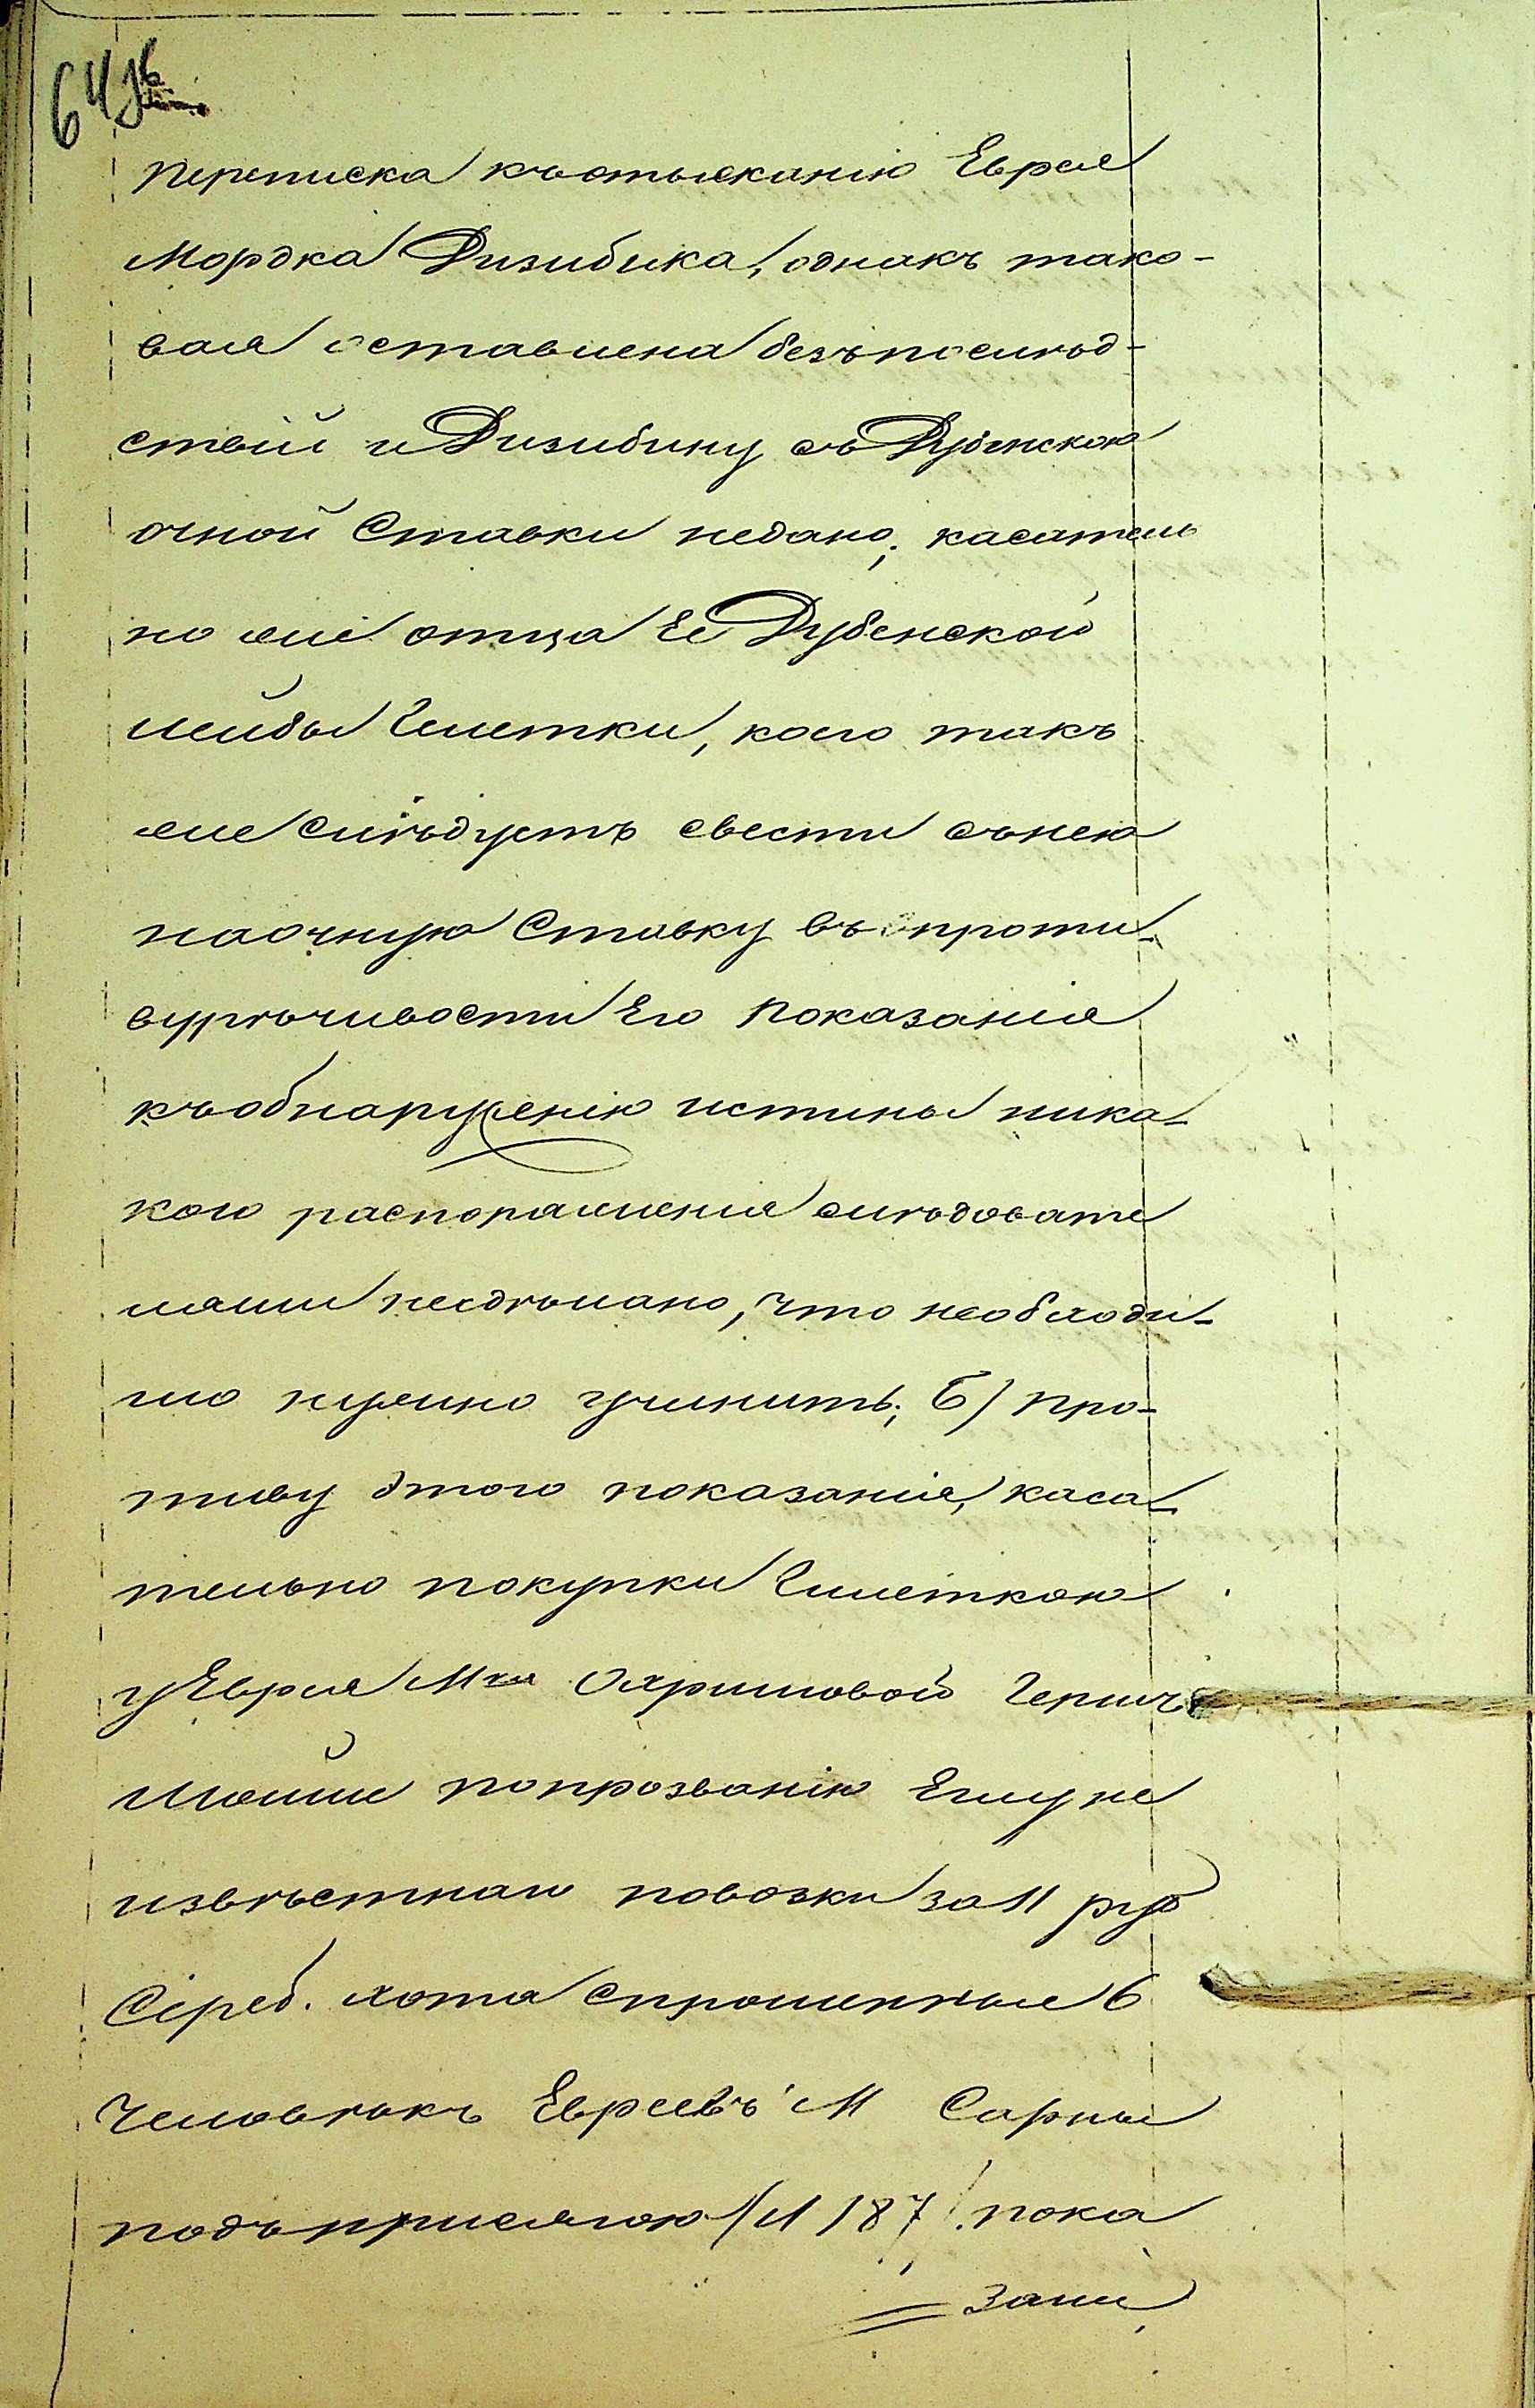 переписка къотысканію Еврея
Мордка Дизибика, однакъ тако-
вая оставлена безъпослѣд-
ствій и Дизибину съ Дубенскою
очной Ставки недано; касатель
но же отца Ее Дубенской
Лейбы Гилетки, коего такъ
же Слѣдуетъ свести сънею
наочную Ставку въ проти-
вурѣчивости Его показанія
къобнаруженію истины ника-
кого распоряженія слѣдовате
лями несдѣлано, что необходи-
мо нужно учинить; Б) про-
тиву этого показанія, каса-
тельно покупки Гилеткою
уЕврея М-ка Охримовой Герш
Мошки попрозванію не
извѣстнаго повозки за 11 руб
Сереб. хотя Спрошенные 6
Человѣкъ Евреевъ М Сарны
подъприсягою /Л 187/ пока
зали,